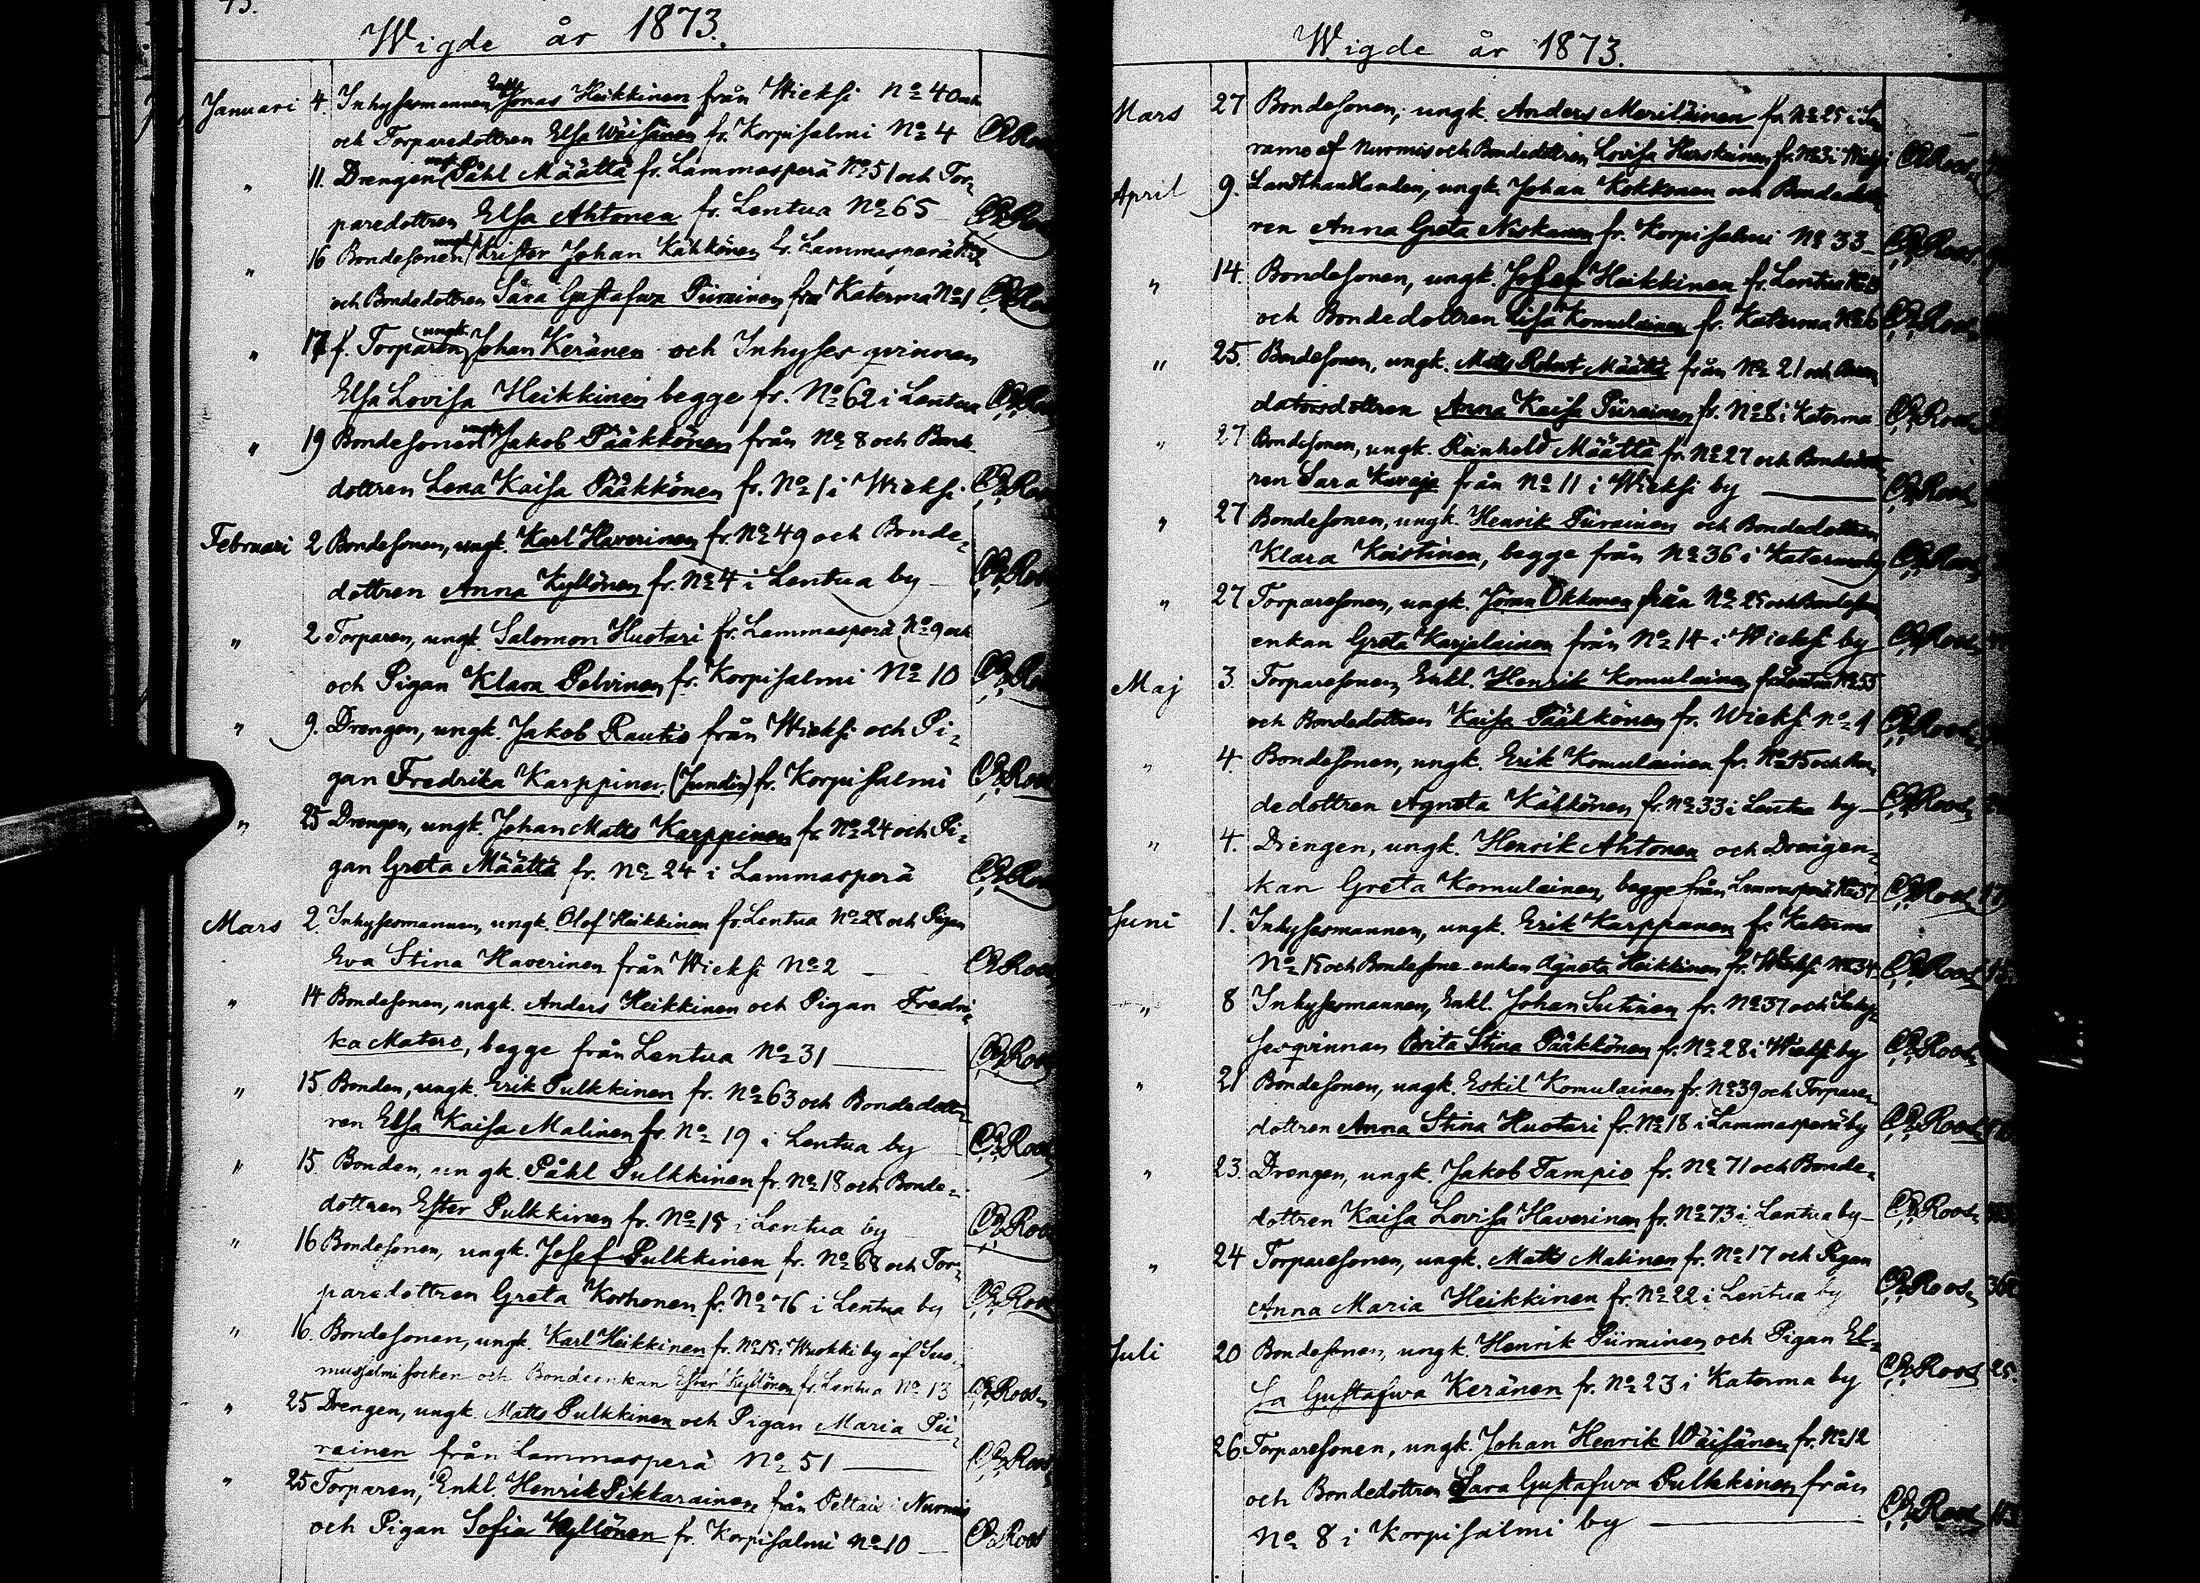 Wigde år 1873.
Januari 4. Inhysesmannen Enkl. Jonas Heikkinen från Wieksi No 40
och Torparedottren Elsa Wäisänen fr. Korpisalmi No 4 Roos
" 11. Drengen ungk. Påhl Määttä fr. Lammasperä No 51 och Tor-
paredottren Elsa Ahtonen fr. Lentua No 65 Roos
" 16 Bondesonen ungk. Krister Johan Kähkönen fr. Lammasperä
och Bondedottren Sara Gustafwa Piirainen från Katerma No 1 Roos
" 17 f. Torparen, ungk. Johan Keränen och Inhyses qvinnan
Elsa Lovisa Heikkinen begge fr. No 62 i Lentua Roos
" 19 Bondesonen ungk. Jakob Pääkkönen från No 8 och Bonde-
dottren Lena Kaisa Pääkkönen fr. No 1 i Wieksi. Roos
Februari 2 Bondesonen, ungk. Karl Haverinen fr. No 49 och Bonde-
dottren Anna Kyllönen fr. No 4 i Lentua by Roos
" 2 Torparen, ungk. Salomon Huotari fr. Lammasperä No 9 och
och Pigan Klara Polvinen fr. Korpisalmi No 10 Roos
" 9. Drengen, ungk. Jakob Rautio från Wieksi och Pi-
gan Fredrika Karppinen (Jundin) fr. Korpisalmi Roos
" 25 Drengen, ungk. Johan Matts Karppinen fr. No 24 och Pi-
gan Greta Määttä fr. No 24 i Lammasperä Roos
Mars 2. Inhysesmannen, ungk. Olof Heikkinen fr. Lentua No 28 och Pigan
Eva Stina Haverinen från Wieksi No 2 Roos
" 14 Bondesonen, ungk. Anders Heikkinen och Pigan Fredri-
ka Matero, begge från Lentua No 31 Roos
" 15 Bonden, ungk. Erik Pulkkinen fr. No 63 och Bondedott-
ren Elsa Kaisa Malinen fr. No 19 i Lentua by Roos
" 15 Bonden, ungk. Påhl Pulkkinen fr. No 18 och Bonde-
dottren Ester Pulkkinen fr. No 15 i Lentua by Roos
" 16 Bondesonen, ungk. Josef Pulkkinen fr. No 68 och Tor-
paredottren Greta Korhonen fr. No 76 i Lentua by Roos
" 16. Bondesonen, ungk. Karl Heikkinen fr. No 15 i Wuokki by af Suo-
mussalmi socken och Bondeenkan Ester Kyllönen fr. Lentua No 13 Roos
" 25 Drengen, ungk. Matts Pulkkinen och Pigan Maria Pii-
rainen från Lammasperä No 51 Roos
" 25 Torparen, Enkl. Henrik Pikkarainen från i Nurmis
och Pigan Sofia Kyllönen fr. Korpisalmi No 10 Roos
Wigde år 1873.
Mars 27 Bondesonen, ungk. Anders Meriläinen fr. No 25 i
ramo af Nurmis och Bondedottren Lovisa Karskainen fr. No 3 i Wieksi Roos
April 9. Landthandlanden, ungk. Johan Kokkonen och Bondedott-
ren Anna Greta Niskanen fr. Korpisalmi No 33 Roos
" 14. Bondesonen, ungk. Josef Heikkinen fr. Lentua
och Bondedottren Lisa Komulainen fr. Katerma No 6 Roos
" 25. Bondesonen, ungk. Matts Robert Määttä från No 21 och Aren-
datorsdottren Anna Kaisa Piirainen fr. No 8 i Katerma Roos
" 27 Bondesonen, ungk. Reinhold Määttä fr. No 27 och Bondedott-
ren Sara Kuvaja från No 11 i Wieksi by Roos
" 27 Bondesonen, ungk. Henrik Piirainen och Bondedottren
Klara Keistinen, begge från No 36 i Katerma by Roos
" 27 Torparesonen, ungk. Jöran Okkonen från No 25 och Bondesone-
enkan Greta Karjalainen från No 14 i Wieksi by Roos
Maj 3. Torparesonen, Enkl. Henrik Komulainen från Lentua No 55
och Bondedottren Kaisa Pääkkönen fr. Wieksi No 4 Roos
" 4. Bondesonen, ungk. Erik Komulainen fr. No 15 och Bon-
dedottren Agneta Kähkönen fr. No 33 i Lentua by Roos
" 4. Drengen, ungk. Henrik Ahtonen och Drengen-
kan Greta Komulainen, begge från Lammasperä No 57 Roos
Juni 1. Inhysesmannen, ungk. Erik Karppanen fr. Katerma
No 15 och Bondesone-enkan Agneta Heikkinen fr. Wieksi No 34 Roos
" 8 Inhysesmannen, Enkl. Johan Sutinen fr. No 37 och Inhy-
sesqvinnan Brita Stina Pääkkönen fr. No 28 i Wieksi by Roos
" 21 Bondesonen, ungk. Eskil Komulainen fr. No 39 och Torpare-
dottren Anna Stina Huotari fr. No 18 i Lammasperä by Roos
" 23. Drengen, ungk. Jakob Tampio fr. No 71 och Bonde-
dottren Kaisa Lovisa Haverinen fr. No 73 i Lentua by Roos
" 24 Torparesonen, ungk. Matts Malinen fr. No 17 och Pigan
Anna Maria Heikkinen fr. No 22 i Lentua by Roos
Juli 20 Bondesonen, ungk. Henrik Piirainen och Pigan El-
sa Gustafwa Keränen fr. No 23 i Katerma by Roos 25.
26 Torparesonen, ungk. Johan Henrik Wäisänen fr. No 12
och Bondedottren Sara Gustafwa Pulkkinen från
No 8 i Korpisalmi by Roos